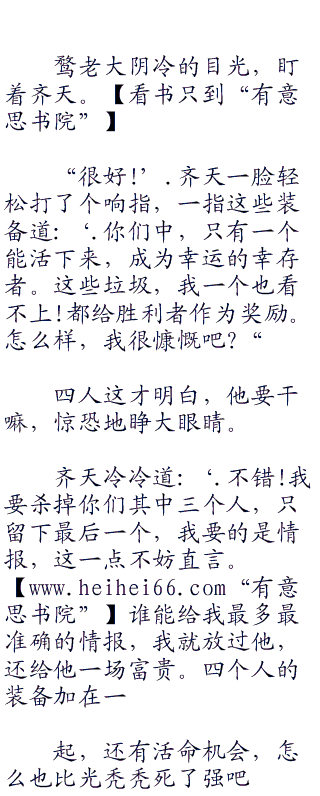 鹜老大阴冷的目光，盯
着齐天。【看书只到“有意
思书院”】
“很好!’.齐天一脸轻
松打了个响指，一指这些装
备道:‘.你们中，只有一个
能活下来，成为幸运的幸存
者。这些垃圾，我一个也看
不上!都给胜利者作为奖励。
怎么样，我很慷慨吧?“
四人这才明白，他要干
嘛，惊恐地睁大眼睛。
齐天冷冷道:‘.不错!我
要杀掉你们其中三个人，只
留下最后一个，我要的是情
报，这一点不妨直言。
【www.heihei66.com“有意
思书院”】谁能给我最多最
准确的情报，我就放过他，
还给他一场富贵。四个人的
装备加在一
起，还有活命机会，怎
么也比光秃秃死了强吧